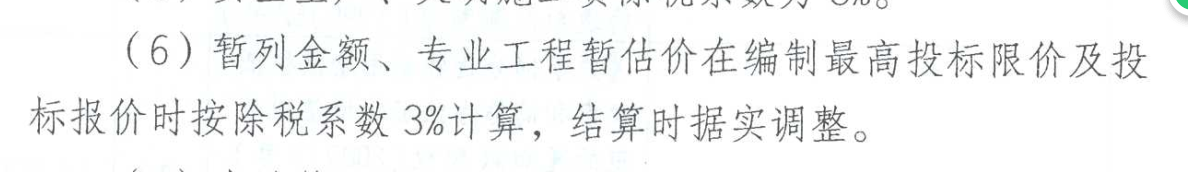 （6）暂列金额、专业工程暂估价在编制最高投标限价及投
标报价时按除税系数 3%计算，结算时据实调整。